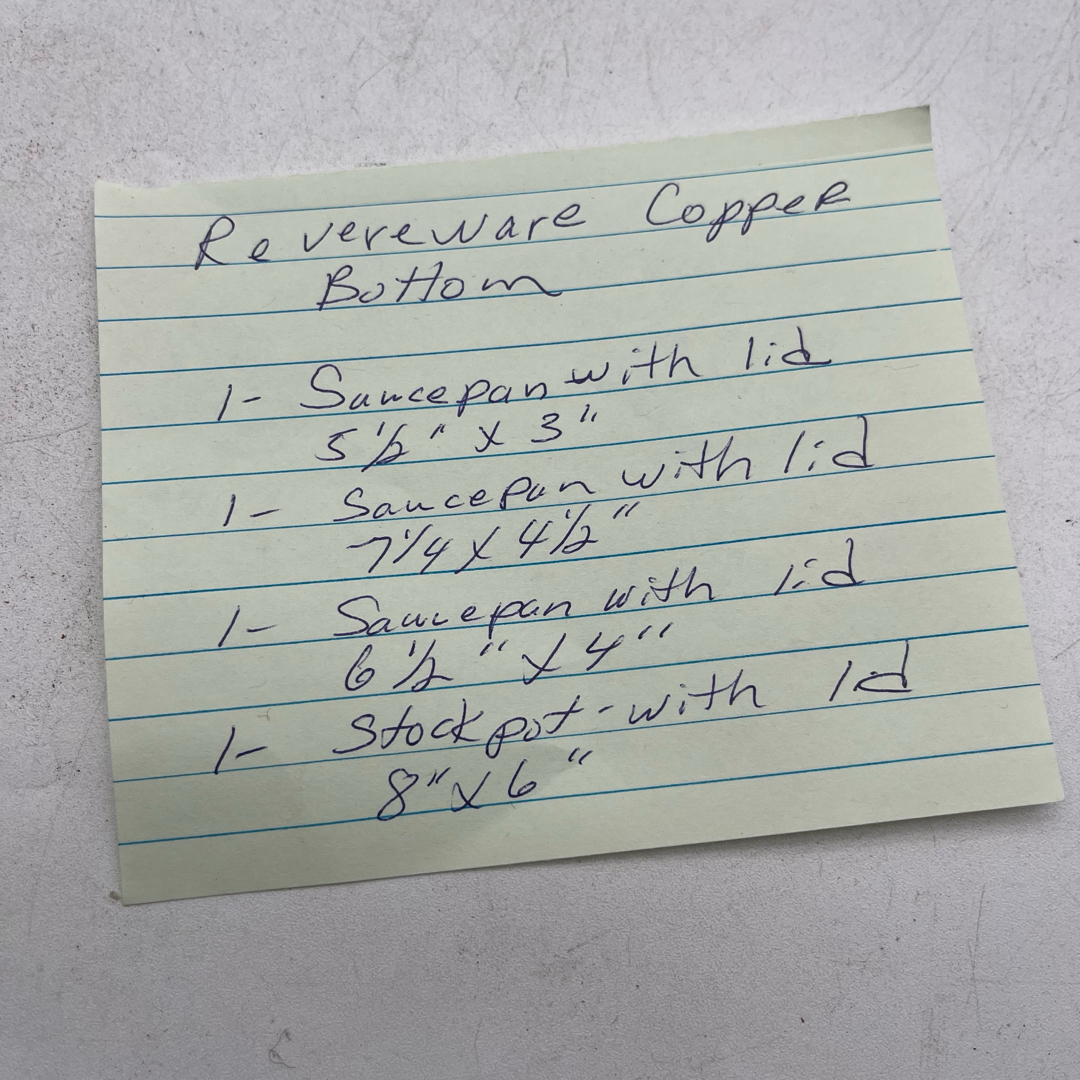 Revereware Copper
Bottom
1- Saucepan with lid
5 1/2" x 3"
1- Saucepan with lid
7 1/4 x 4 1/2"
1- Saucepan with lid
6 1/2" x 4"
1- Stockpot - with lid
8" x 6"